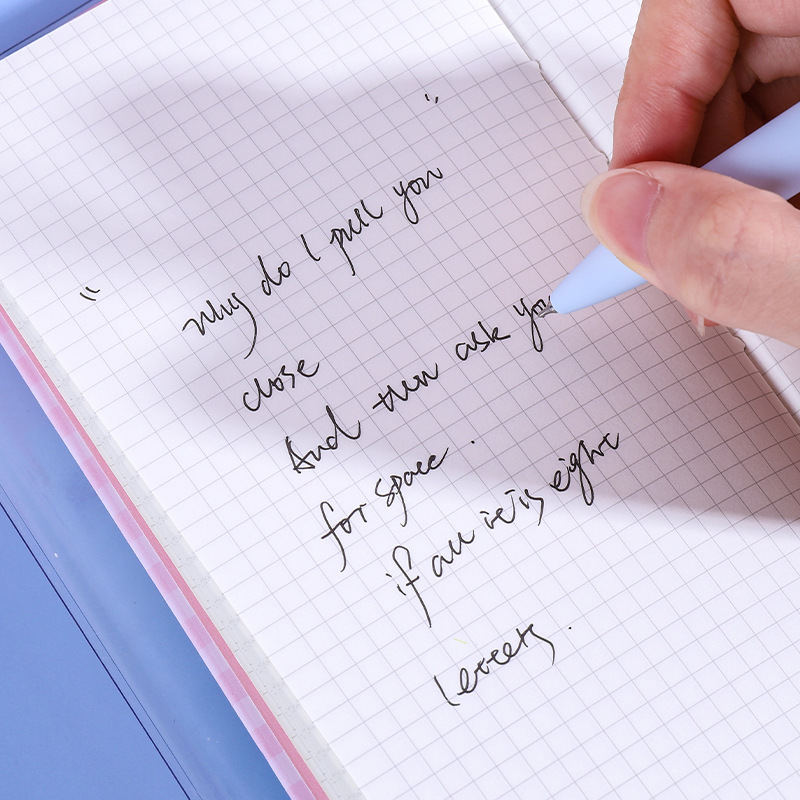 "Why do I pull you"
close
And then ask you
for space.
if all it is is eight
letters.